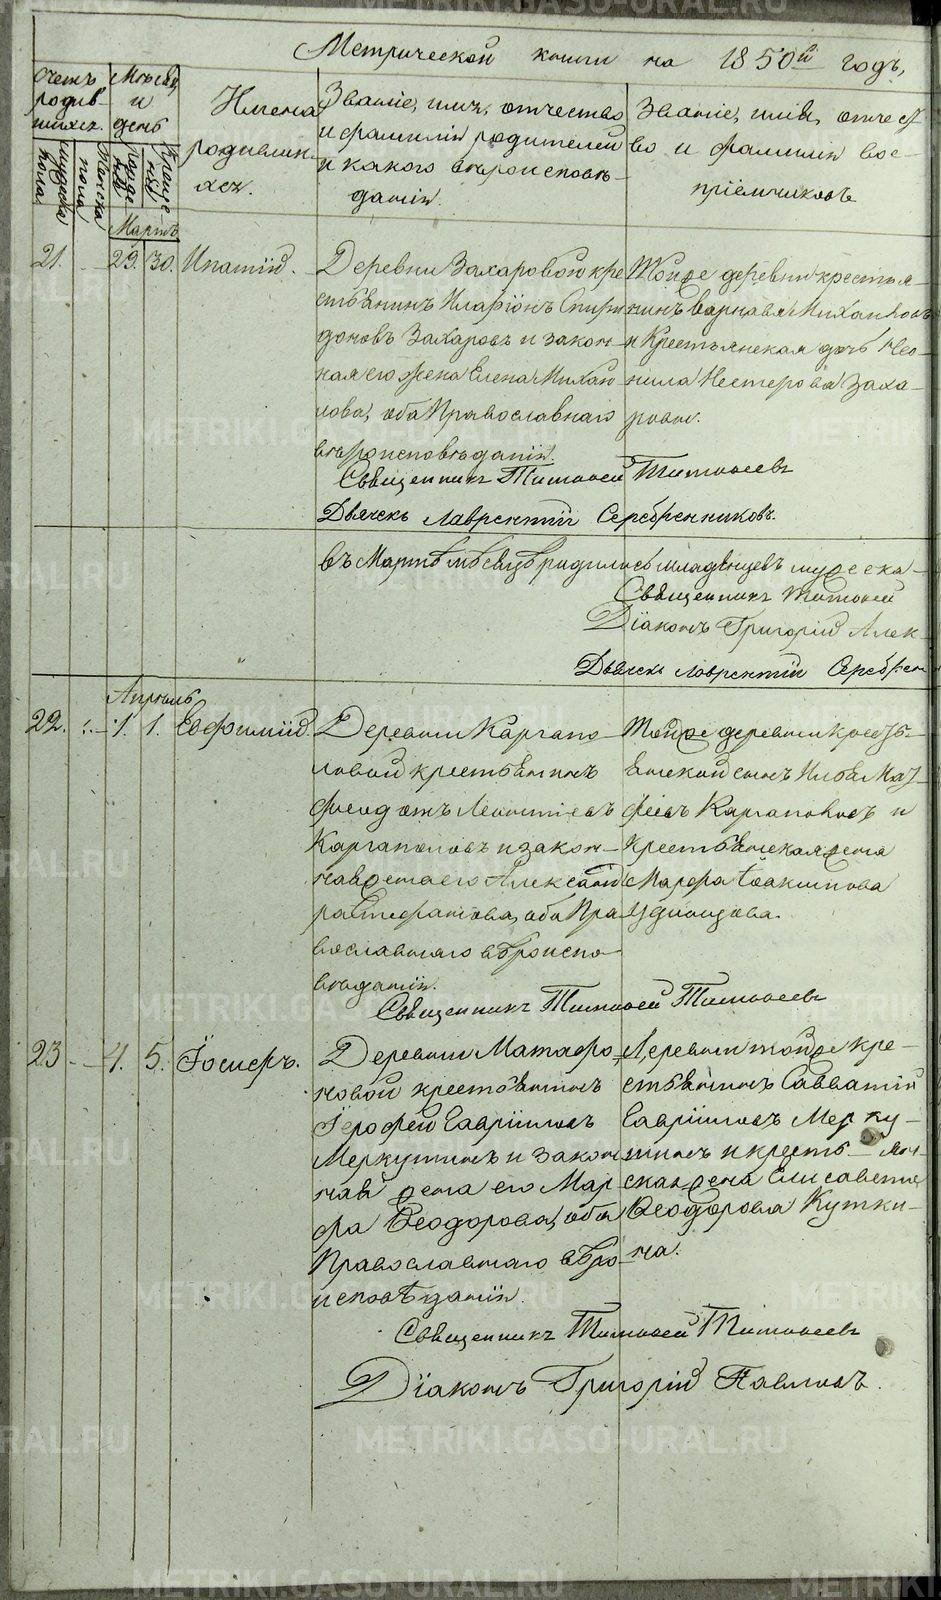 Метрической книги на 1850й годъ,
Счетъ родив-
шихся.
Мужеска
пола
Женска
пола
Мѣсяцъ
и
день
Рожде
нія
Креще
нія
Имена
родивши-
хся.
Званіе, имя, отчество
и фамилія родителей
и какого вѣроисповѣ-
данія.
Званіе, имя, отчест
во и фамилія вос-
пріемниковъ
Мартъ
21. 29. 30. Ипатій.
Деревни Захаровой кре
стьянинъ Иларіонъ Спири
доновъ Захаровъ и закон-
ная его жена Елена Михаи
лова, оба Православнаго
вѣроисповѣданія.
Тойже деревни крестья-
нинъ Варнава Михайловъ
и Крестьянская дочь Нео-
нила Нестерова Заха-
рова.
Священникъ Тимофей Тимофеевъ
Дьячекъ Лаврентій Серебренниковъ.
Въ Мартѣ мѣсяцѣ родилось младенцевъ мужеска-
Священникъ Тимофей
Діаконъ Григорій Алек-
Дьячекъ Лаврентій Серебрен
Апрѣль
22. 1. 1. Евфимій.
Деревни Каргапо-
ловой крестьянинъ
Феодотъ Леонтіевъ
Каргаполовъ и закон-
ная жена его Александ
ра Стефанова, оба Пра
вославнаго вѣроиспо-
вѣданія.
Тойже деревни кресть-
янской сынъ Илья Мат-
фіевъ Каргаполовъ и
крестьянская жена
Марфа Іоакимова
Священникъ Тимофей Тимофеевъ
23 4. 5. Іосифъ.
Деревни Матафо-
новой крестьянинъ
Іерофей Гавріиловъ
Меркушинъ и закон
ная жена его Мар
фа Ѳеодорова, оба
Православнаго вѣро-
исповѣданія.
Деревни тойже кре-
стьянинъ Савватій
Гавріиловъ Мерку-
шинъ и кресть-ян-
ская жена Елисавета
Ѳеодорова Куткина
Священникъ Тимофей Тимофеевъ
Діаконъ Григорій Павловъ.
METRIKI.GASO-URAL.RU